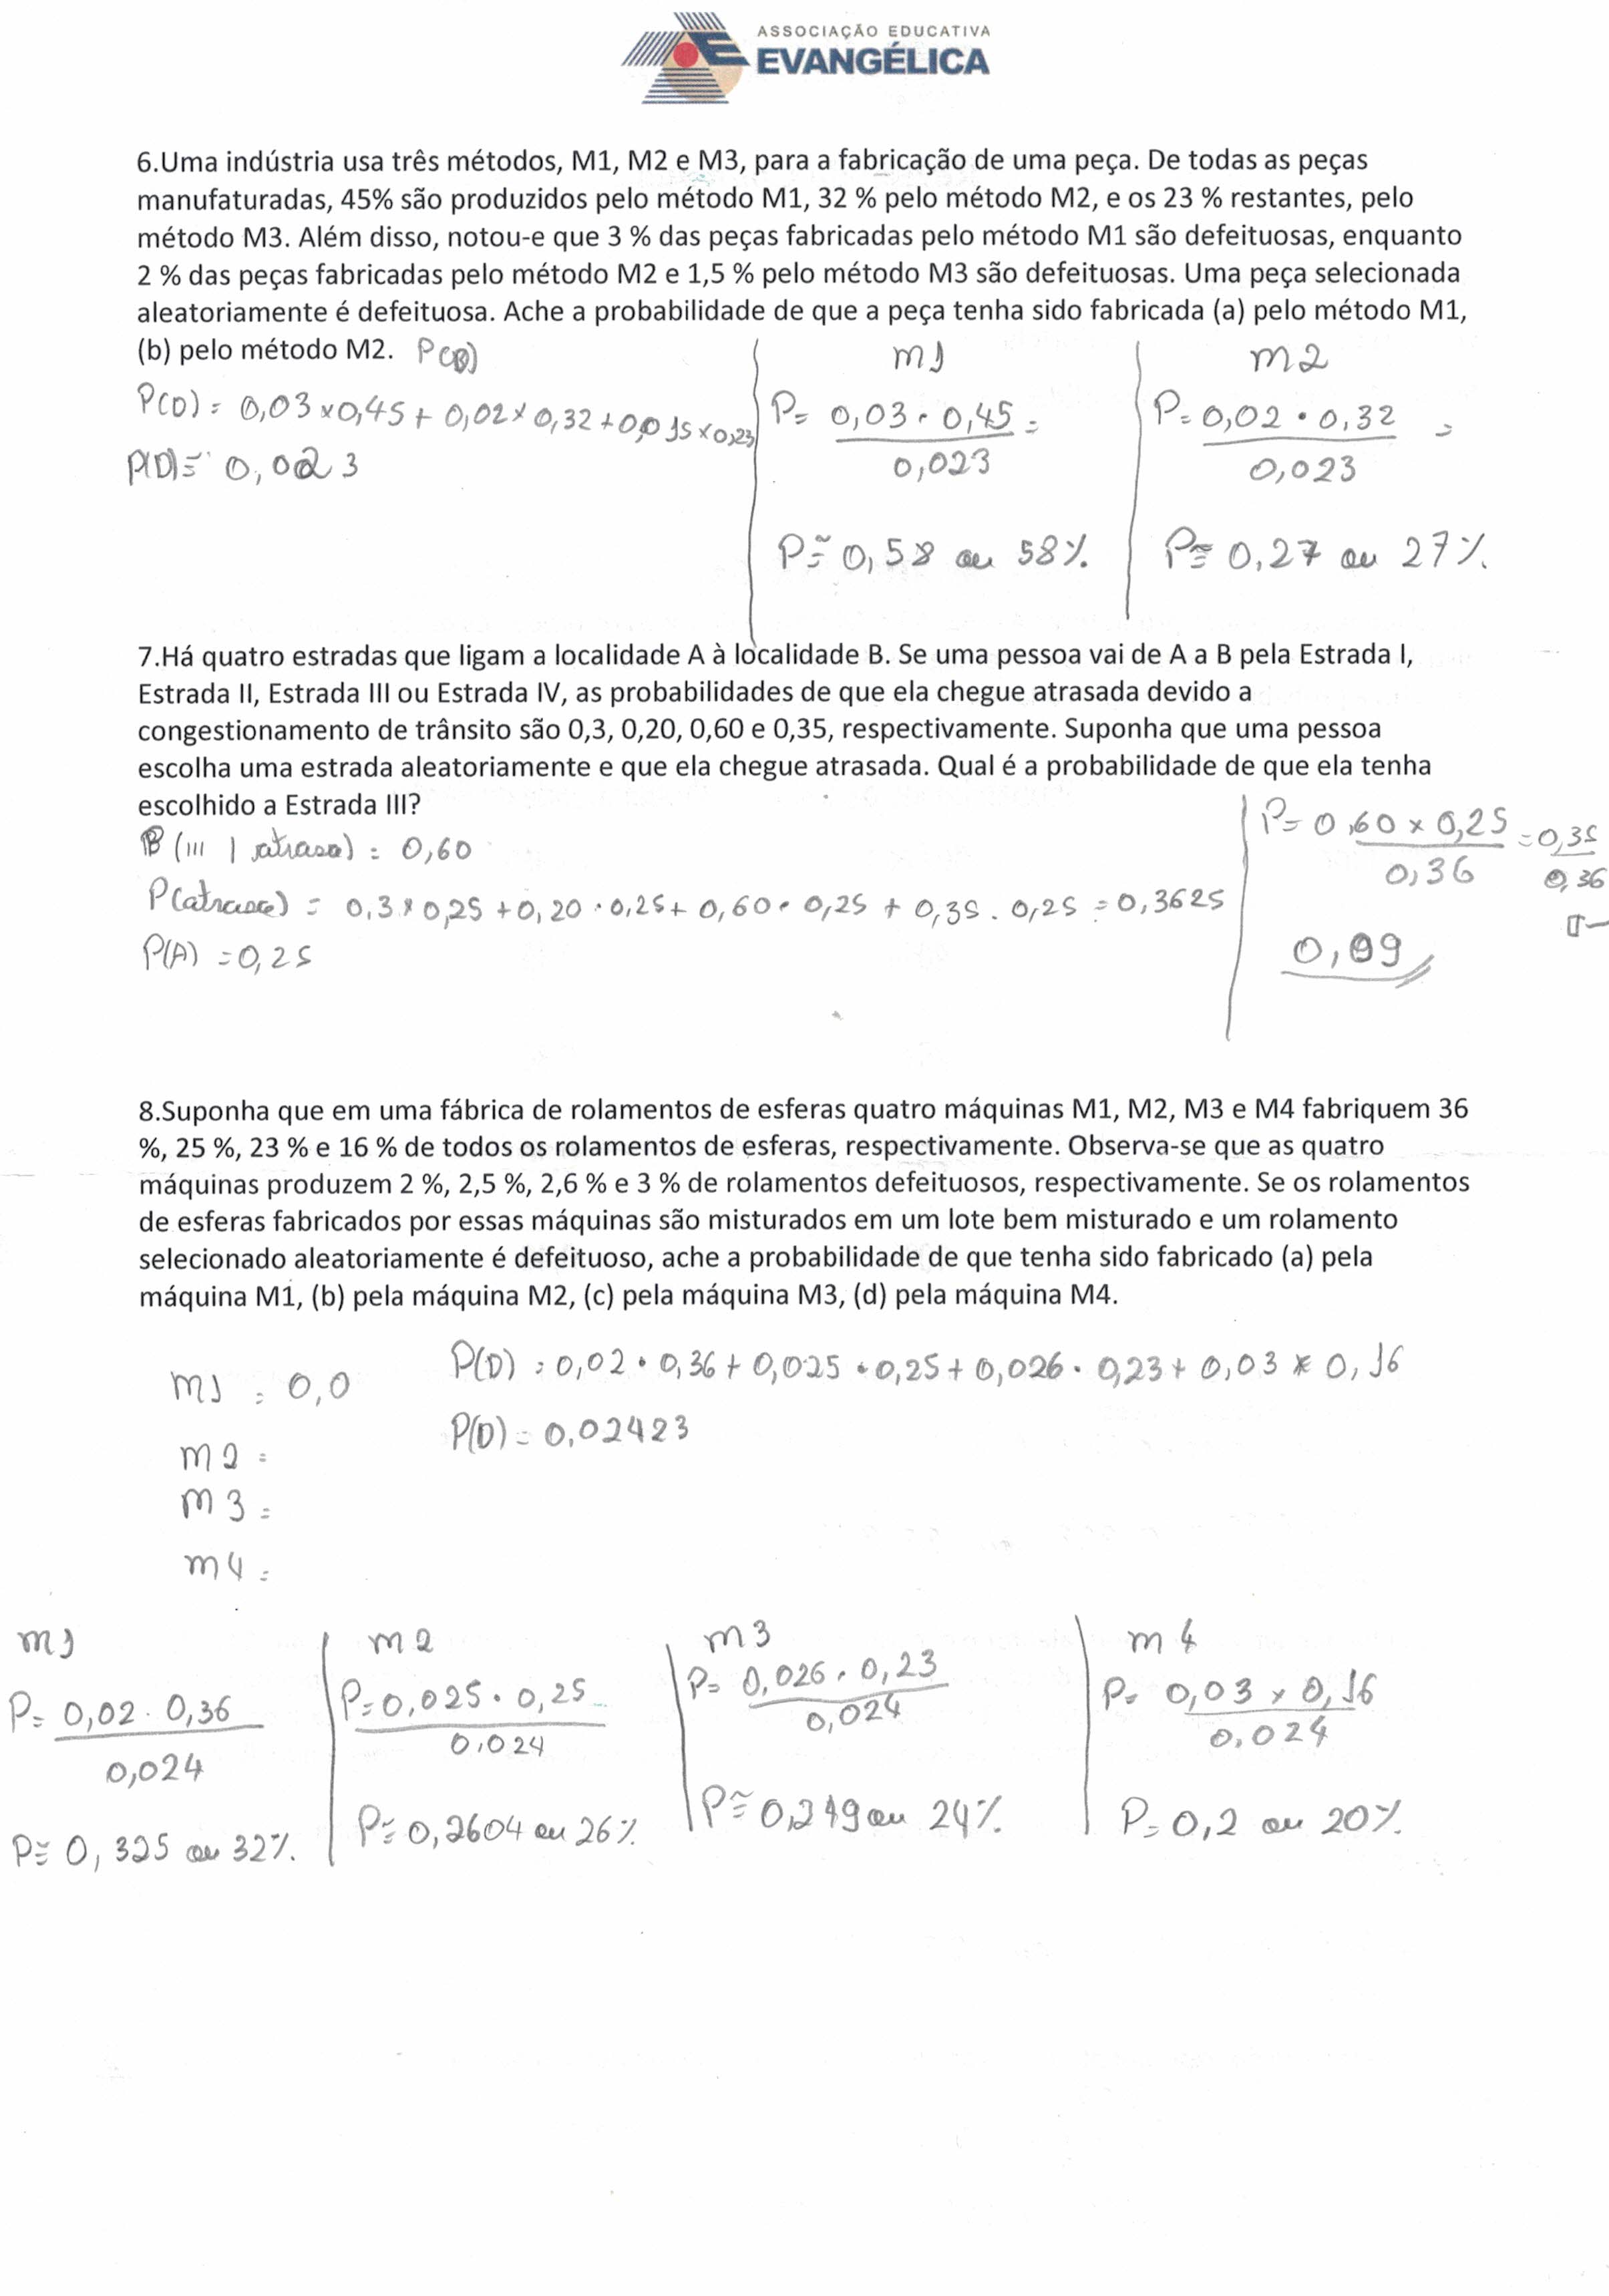 ASSOCIAÇÃO EDUCATIVA
EVANGÉLICA
6.Uma indústria usa três métodos, M1, M2 e M3, para a fabricação de uma peça. De todas as peças
manufaturadas, 45% são produzidos pelo método M1, 32 % pelo método M2, e os 23 % restantes, pelo
método M3. Além disso, notou-e que 3 % das peças fabricadas pelo método M1 são defeituosas, enquanto
2 % das peças fabricadas pelo método M2 e 1,5 % pelo método M3 são defeituosas. Uma peça selecionada
aleatoriamente é defeituosa. Ache a probabilidade de que a peça tenha sido fabricada (a) pelo método M1,
(b) pelo método M2. P(D)
P(D) = 0,03 x 0,45 + 0,02 x 0,32 + 0,015 x 0,23
P(D) = 0,023
m1
P= 0,03 · 0,45 =
0,023
P≅ 0,58 ou 58%.
m2
P= 0,02 · 0,32 =
0,023
P≅ 0,27 ou 27%.
7.Há quatro estradas que ligam a localidade A à localidade B. Se uma pessoa vai de A a B pela Estrada I,
Estrada II, Estrada III ou Estrada IV, as probabilidades de que ela chegue atrasada devido a
congestionamento de trânsito são 0,3, 0,20, 0,60 e 0,35, respectivamente. Suponha que uma pessoa
escolha uma estrada aleatoriamente e que ela chegue atrasada. Qual é a probabilidade de que ela tenha
escolhido a Estrada III?
(III | atraso) = 0,60
P(atraso) = 0,3 x 0,25 + 0,20 · 0,25 + 0,60 · 0,25 + 0,35 . 0,25 = 0,3625
P(A) = 0,25
P= 0,60 x 0,25 = 0,35
0,36 0,36
0,09
8.Suponha que em uma fábrica de rolamentos de esferas quatro máquinas M1, M2, M3 e M4 fabriquem 36
%, 25 %, 23 % e 16 % de todos os rolamentos de esferas, respectivamente. Observa-se que as quatro
máquinas produzem 2 %, 2,5 %, 2,6 % e 3 % de rolamentos defeituosos, respectivamente. Se os rolamentos
de esferas fabricados por essas máquinas são misturados em um lote bem misturado e um rolamento
selecionado aleatoriamente é defeituoso, ache a probabilidade de que tenha sido fabricado (a) pela
máquina M1, (b) pela máquina M2, (c) pela máquina M3, (d) pela máquina M4.
P(D) = 0,02 · 0,36 + 0,025 · 0,25 + 0,026 · 0,23 + 0,03 x 0,16
P(D) = 0,02423
m1 = 0,0
m2 =
m3 =
m4 =
m1
P= 0,02 . 0,36
0,024
P≅ 0,325 ou 32%.
m2
P= 0,025 · 0,25
0,024
P≅ 0,2604 ou 26%.
m3
P= 0,026 · 0,23
0,024
P≅ 0,249 ou 24%.
m4
P= 0,03 x 0,16
0,024
P= 0,2 ou 20%.